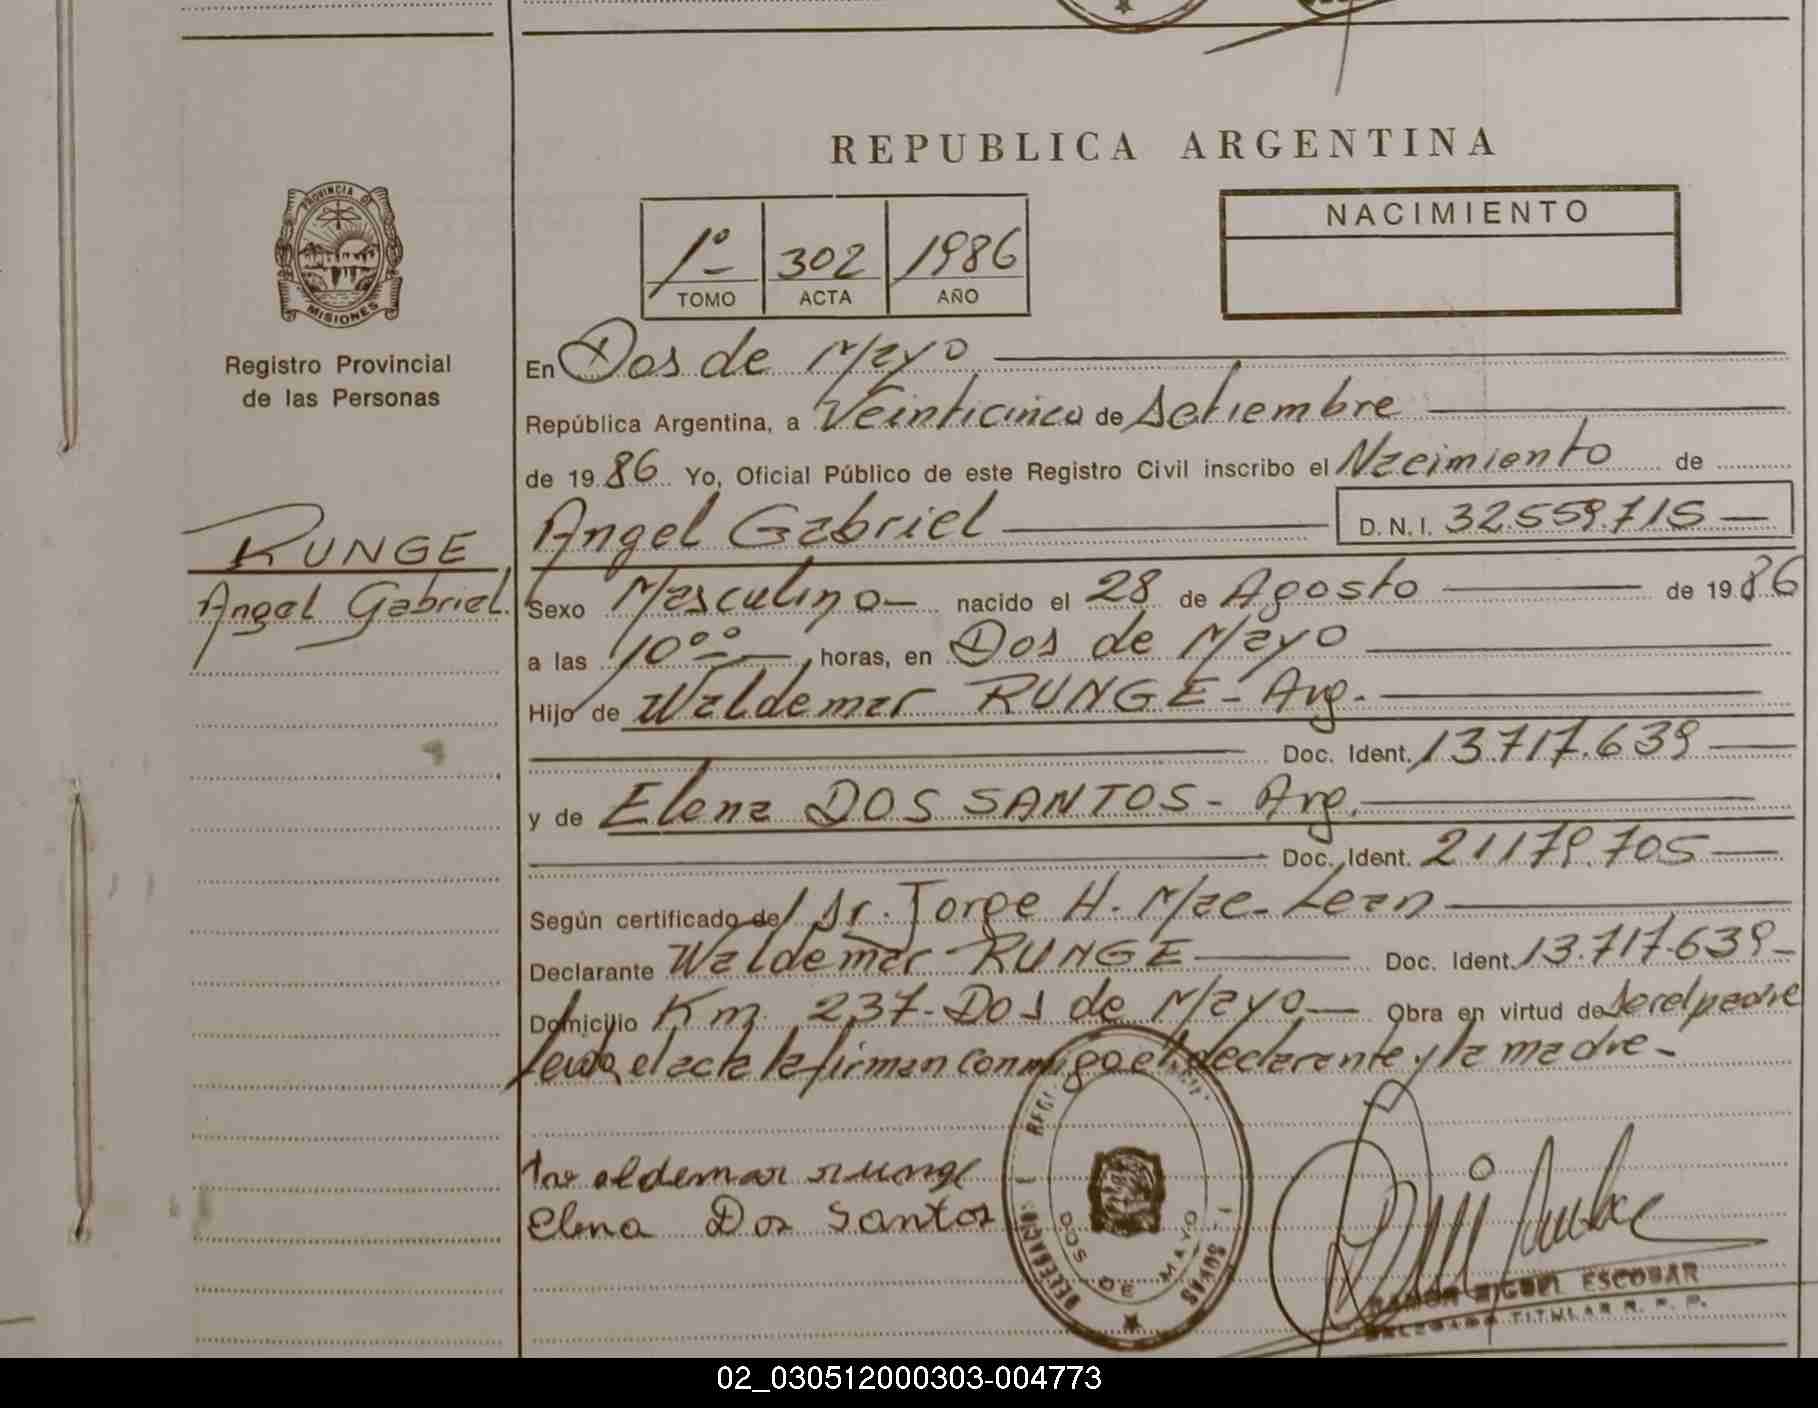 REPUBLICA ARGENTINA
PROVINCIA DE
MISIONES
Registro Provincial
de las Personas
1º 302 1986
TOMO ACTA AÑO
NACIMIENTO
En Dos de Mayo
República Argentina, a Veinticinco de Setiembre
de 19 86 Yo, Oficial Público de este Registro Civil inscribo el Nacimiento de
RUNGE
Angel Gabriel
Angel Gabriel D.N.I. 32.559.715
Sexo Masculino nacido el 28 de Agosto de 19 86
a las 10ºº horas, en Dos de Mayo
Hijo de Waldemar RUNGE - Arg.
Doc. Ident. 13.717.639
y de Elena DOS SANTOS - Arg.
Doc. Ident. 21179.705
Según certificado de Dr. Jorge H. Mac-Lean
Declarante Waldemar RUNGE Doc. Ident. 13.717.639
Domicilio Km. 237- Dos de Mayo Obra en virtud de ser el padre
leida el acta la firman conmigo el declarante y la madre-
Waldemar runge
Elena Dos Santos
DOS DE MAYO
RAMON MIGUEL ESCOBAR
DELEGADO TITULAR R. P. P.
02_030512000303-004773